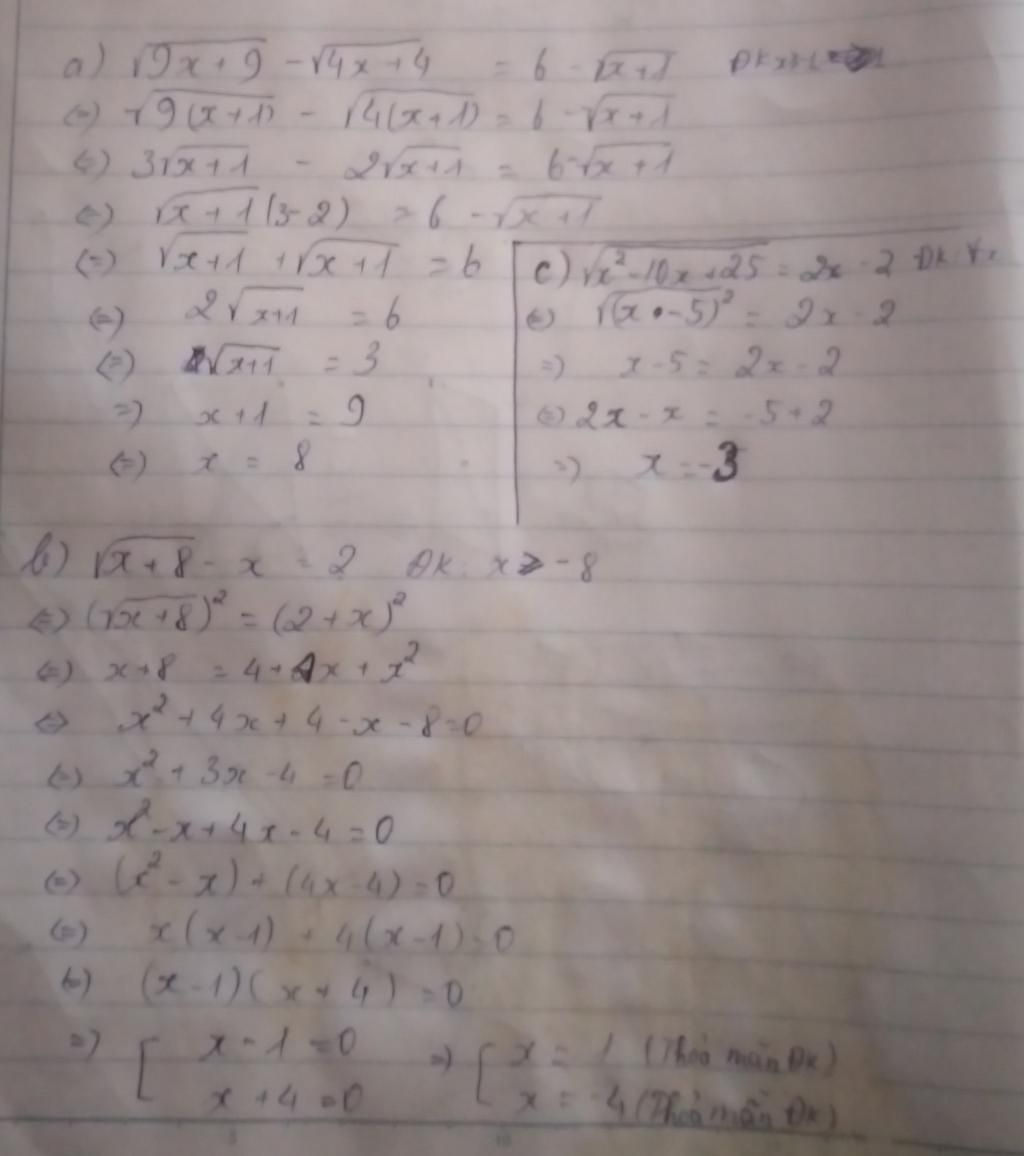 a) √9x+9 - √4x+4 = 6 - √x+1 ĐK
(=) √9(x+1) - √4(x+1) = 6 - √x+1
(=) 3√x+1 - 2√x+1 = 6-√x+1
(=) √x+1 (3-2) = 6 - √x+1
(=) √x+1 + √x+1 = 6
(=) 2√x+1 = 6
(=) √x+1 = 3
=) x+1 = 9
(=) x = 8
c) √x²-10x+25 = 2x-2 ĐK: ∀x
(=) √(x-5)² = 2x-2
=) x-5 = 2x-2
(=) 2x-x = -5+2
=) x = -3
b) √x+8 - x = 2 ĐK: x ≥ -8
(=) (√x+8)² = (2+x)²
(=) x+8 = 4+4x+x²
(=) x²+4x+4-x-8=0
(=) x²+3x-4=0
(=) x²-x+4x-4=0
(=) (x²-x)+(4x-4)=0
(=) x(x-1)+4(x-1)=0
(=) (x-1)(x+4)=0
=) [ x-1=0 =) [ x = 1 (Thoả mãn ĐK)
x+4=0 x = -4 (Thoả mãn ĐK)